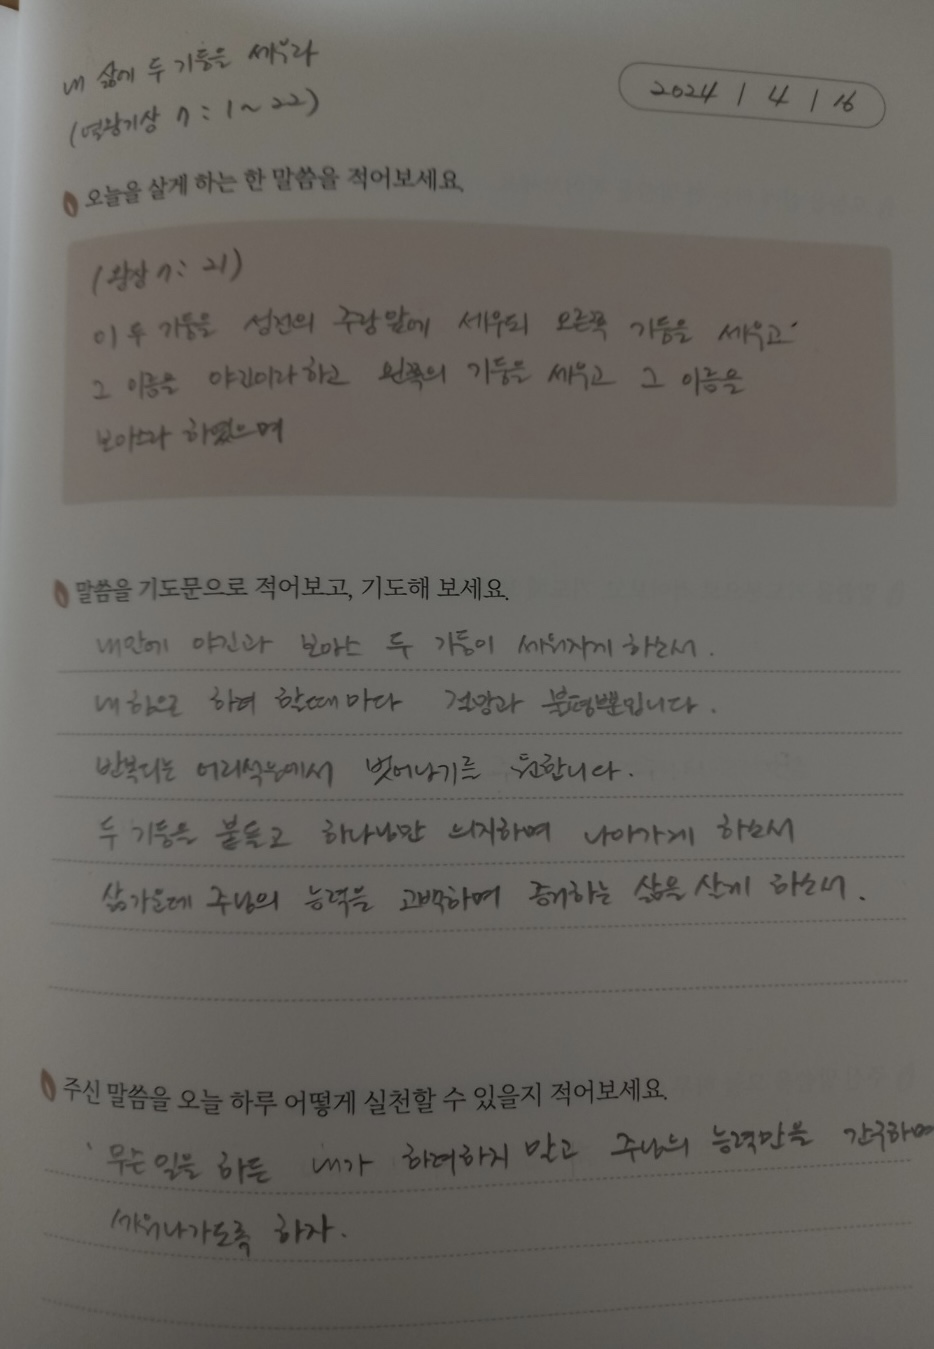 내 삶에 두 기둥을 세우라
(열왕기상 7:1~22)
2024 / 4 / 16
오늘을 살게 하는 한 말씀을 적어보세요.
(왕상 7:21)
이 두 기둥을 성전의 주랑 앞에 세우되 오른쪽 기둥을 세우고
그 이름을 야긴이라 하고 왼쪽의 기둥을 세우고 그 이름을
보아스라 하였으며
말씀을 기도문으로 적어보고, 기도해 보세요.
내안에 야긴과 보아스 두 기둥이 세워지게 하소서.
내힘으로 하려 할때마다 절망과 불평뿐입니다.
반복되는 어리석음에서 벗어나기를 원합니다.
두 기둥을 붙들고 하나님만 의지하며 나아가게 하소서
삶가운데 주님의 능력을 고백하며 증거하는 삶을 살게 하소서.
주신 말씀을 오늘 하루 어떻게 실천할 수 있을지 적어보세요.
무슨일을 하든 내가 하려하지 말고 주님의 능력만을 간구하며
세워나가도록 하자.